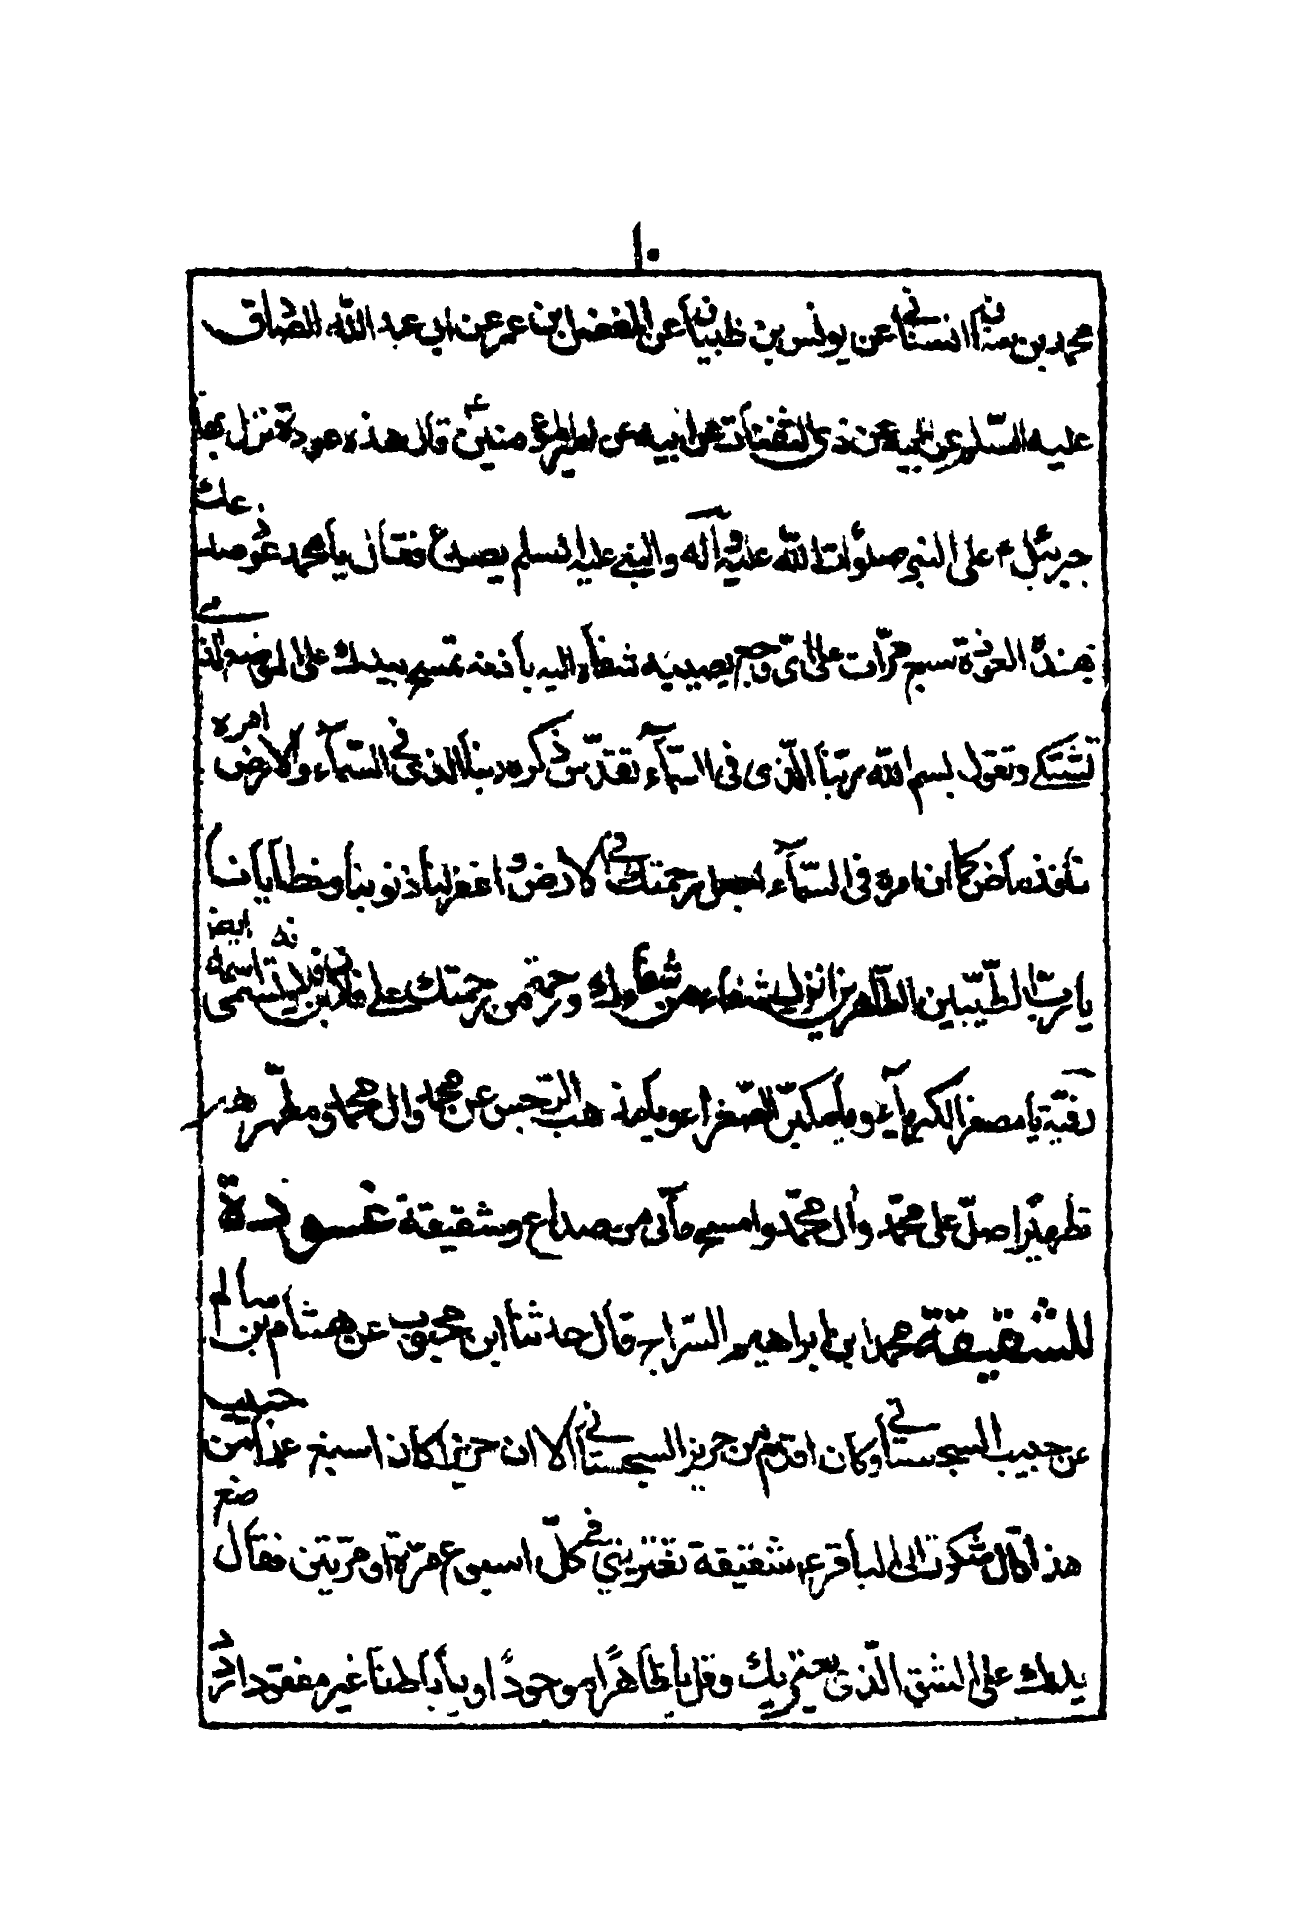 ١٠
محمد بن سنان السناني عن يونس بن ظبيان عن المفضل بن عمر عن ابي عبد الله الصادق
عليه السلم عن ابيه عن ذي الثفنات عن ابيه عن امير المؤمنين ع قال هذه عوذة نزل بها
جبرئيل ع على النبي صلوات الله عليه وآله والنبي عليه السلم يصدع فقال يا محمد عوذ صداعك
بهذه العوذة سبع مرات على اي وجع يصيبه شفاه الله باذنه تمسح بيدك على الموضع الذي
تشتكي وتقول بسم الله ربنا الذي في السمآء تقدس ذكره ربنا الذي في السمآء والارض امره
نافذ ماض كما ان امره في السمآء اجعل رحمتك في الارض واغفر لنا ذنوبنا وخطايانا
يا رب الطيبين الطاهرين انزل شفاء من شفائك ورحمة من رحمتك على فلان بن فلانة وتسمي اسمه ايضا
رقية يا مصغر الكبرآء ويا مكبر الصغراء ويا مذهب الرجس عن محمد وآل محمد ومطهرهم
تطهيرا صل على محمد وآل محمد وامسح ما بي من صداع وشقيقة عوذة
للشقيقة محمد ابن ابراهيم السراج قال حدثنا ابن محبوب عن هشام بن سالم
عن حبيب السجستاني وكان اقدم من حريز السجستاني الا ان حريزا كان اسبغ علما من حبيب
هذا قال شكوت الى الباقر ع شقيقة تعتريني في كل اسبوع مرة او مرتين فقال ضع
يدك على الشق الذي يعتريك وقل يا ظاهرا موجودا ويا باطنا غير مفقود اردد